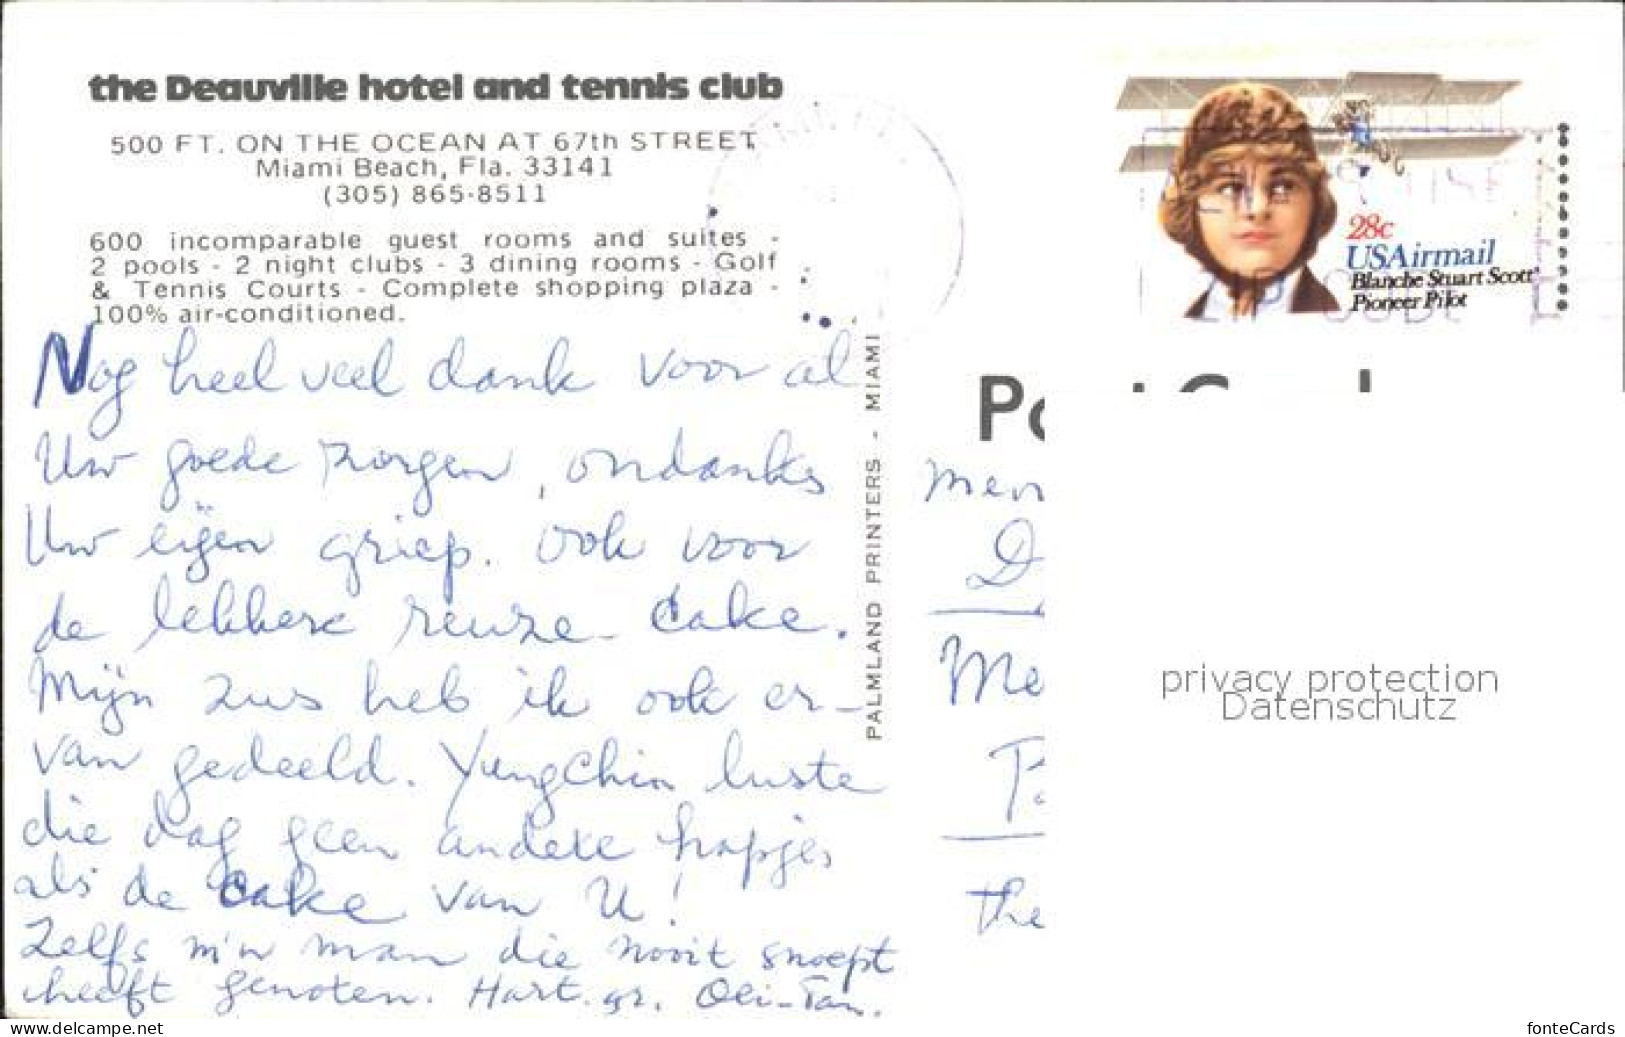 the Deauville hotel and tennis club
500 FT. ON THE OCEAN AT 67th STREET
Miami Beach, Fla. 33141
(305) 865-8511
600 incomparable guest rooms and suites -
2 pools - 2 night clubs - 3 dining rooms - Golf
& Tennis Courts - Complete shopping plaza -
100% air-conditioned.
Nog heel veel dank voor al
Uw goede zorgen, ondanks
Uw eigen griep. Ook voor
de lekkere reuze-cake.
Mijn zus heb ik ook er-
van gedeeld. YungChin luste
die dag geen andere hapjes
als de cake van U!
Zelfs m'n man die nooit snoept
heeft genoten. Hart. gr. Oei-Tan.
PALMLAND PRINTERS - MIAMI
28c
USAirmail
Blanche Stuart Scott
Pioneer Pilot
ZIP CODE
Me
the
privacy protection
Datenschutz
www.delcampe.net
fonteCards